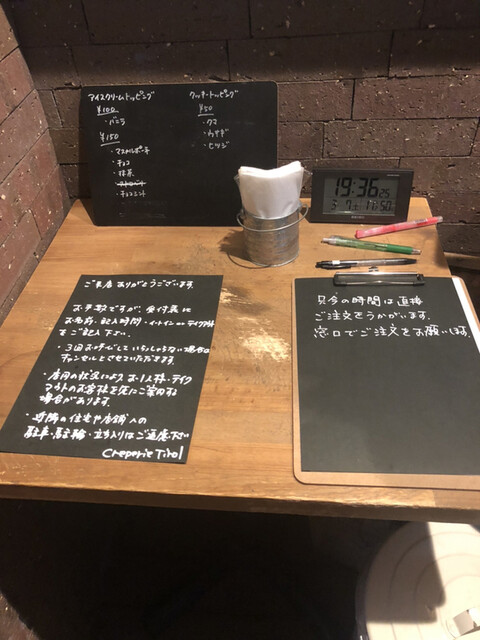 アイスクリームトッピング
¥100
・バニラ
¥150
・マスカルポーネ
・チョコ
・抹茶
・チョコミント
クッキートッピング
¥50
・クマ
・ウサギ
・ヒツジ
19:36 25
3 7 11 50
SEIKO
ご来店ありがとうございます。
お手数ですが、受付表に
お名前・記入時間・イートイン or テイクアウト
をご記入下さい。
・3回お呼びしていらっしゃらない場合は
キャンセルとさせていただきます。
・店内の状況により、お1人様・テイク
アウトのお客様を先にご案内する
場合があります。
・近隣の住宅や店舗への
駐車・駐輪・立ち入りはご遠慮下さい
Creperie Tirol
只今の時間は直接
ご注文をうかがいます。
窓口でご注文をお願いします。